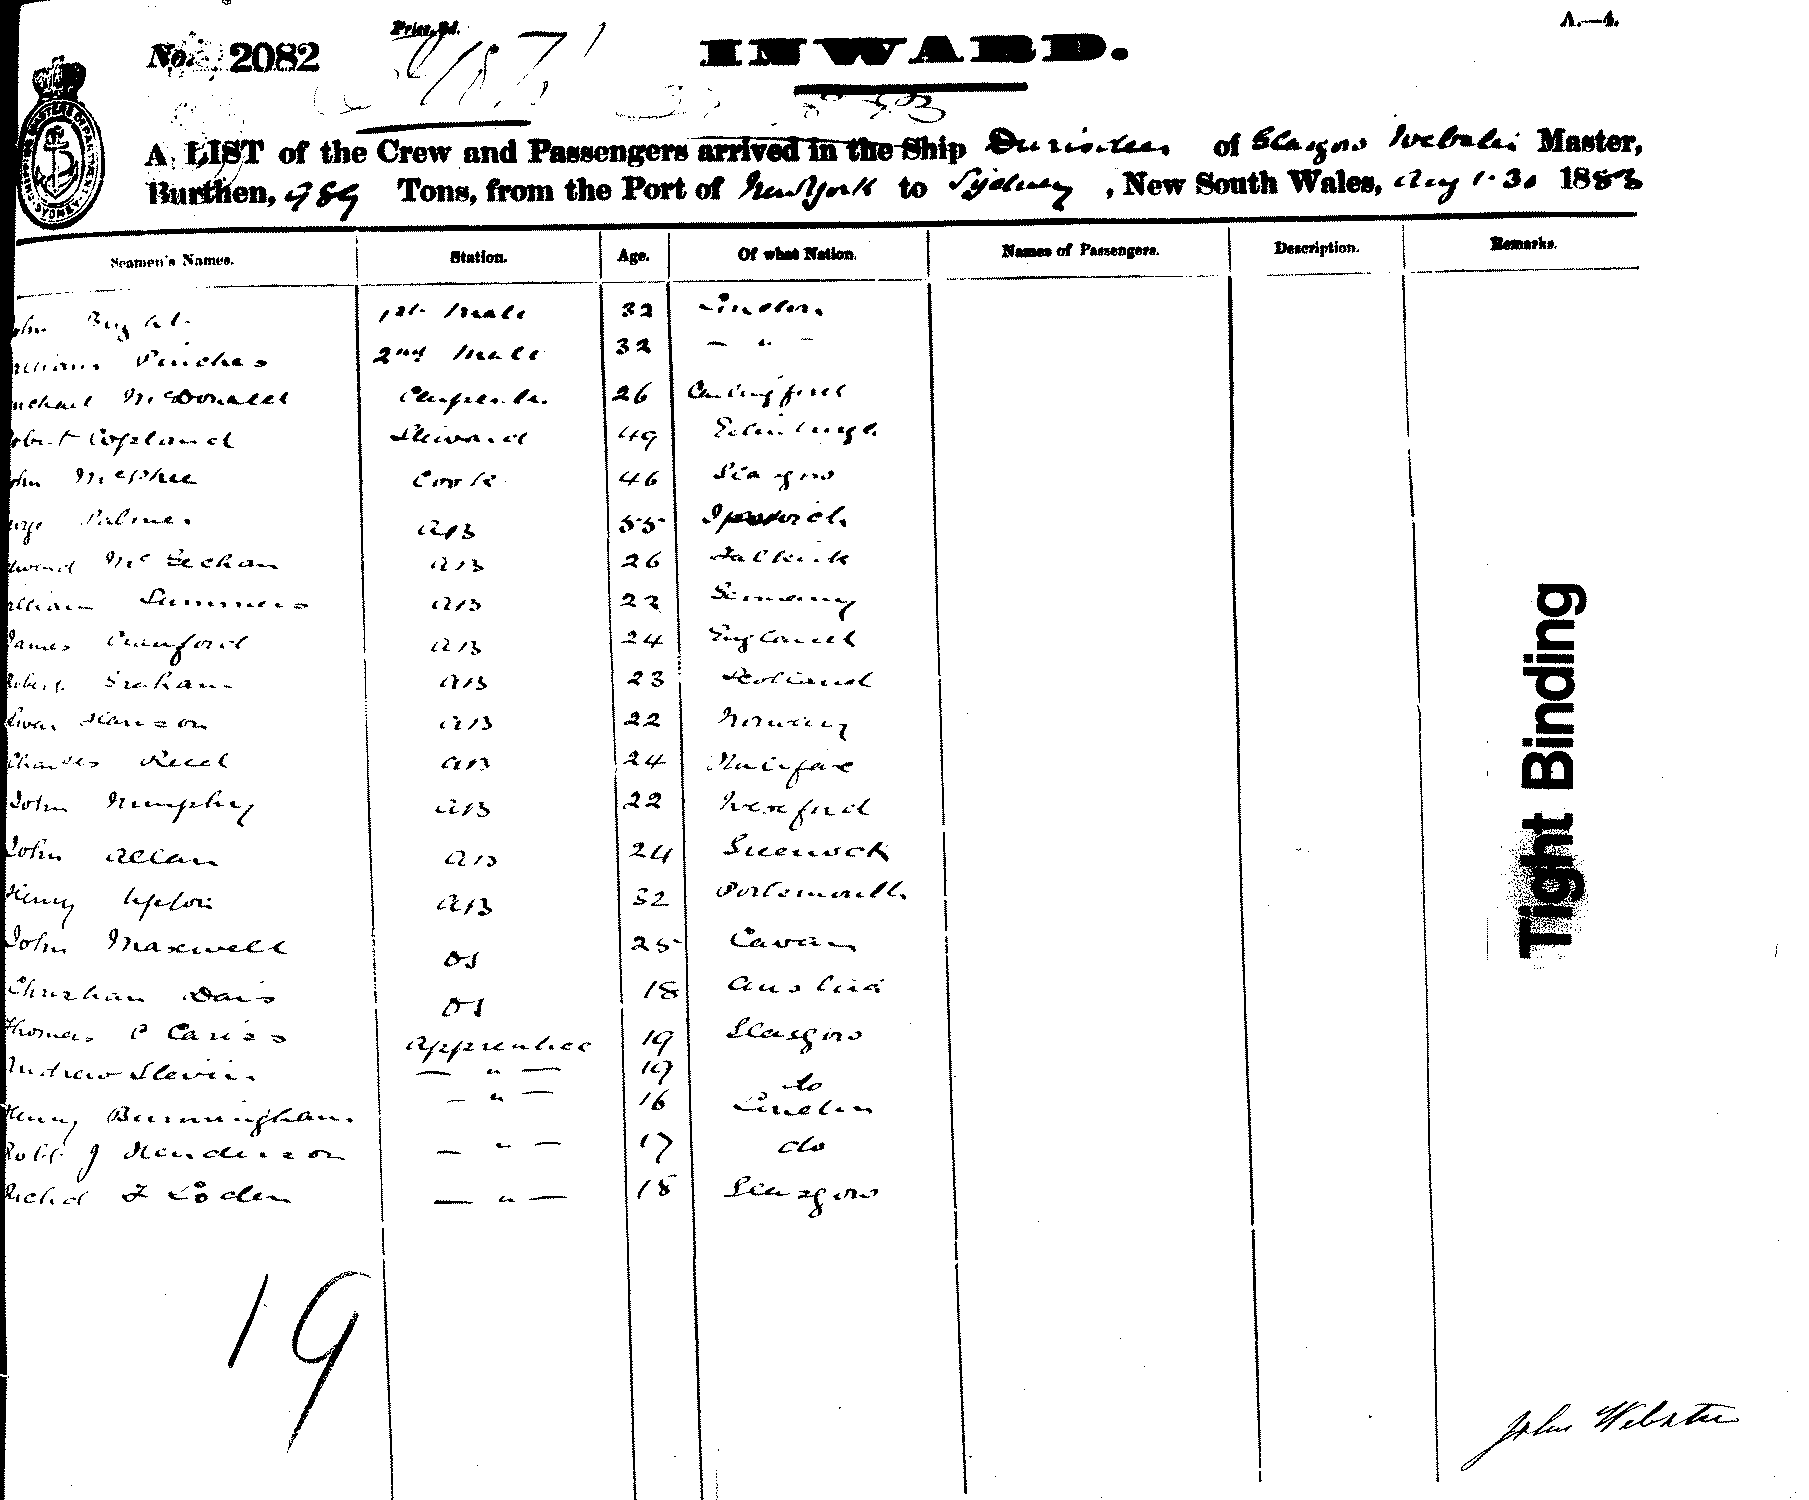 A.—4.
Price, 3d.
No. 2082
INWARD.
A LIST of the Crew and Passengers arrived in the Ship of Glasgow Webster Master,
Burthen, 989 Tons, from the Port of New York to Sydney, New South Wales, Aug 30 1883
Seamen's Names. Station. Age. Of what Nation. Names of Passengers. Description. Remarks.
ohn 1st Mate 32 London
Pinches 2nd Mate 32 — " —
McDonald Carpenter 26
obert Copland Steward 49 Edinburgh
ohn McPhee Cook 46 Glasgow
Palmer AB 55 Ipswich
McGechan AB 26 Falkirk
illiam Summers AB 22 Germany
James Crawford AB 24 England
Graham AB 23 Scotland
Hanson AB 22 Norway
Charles Reed AB 24 Halifax
John Murphy AB 22 Wexford
John Allan AB 24 Greenock
Henry Upton AB 32 Portsmouth
John Maxwell OS 25 Cavan
Christian OS 18 Austria
Thomas C Apprentice 19 Glasgow
Andrew Slevin — " — 19 do
Henry Burmingham — " — 16 London
Robt J Henderson — " — 17 do
Richd F Loden — " — 18 Glasgow
Tight Binding
19
John Webster